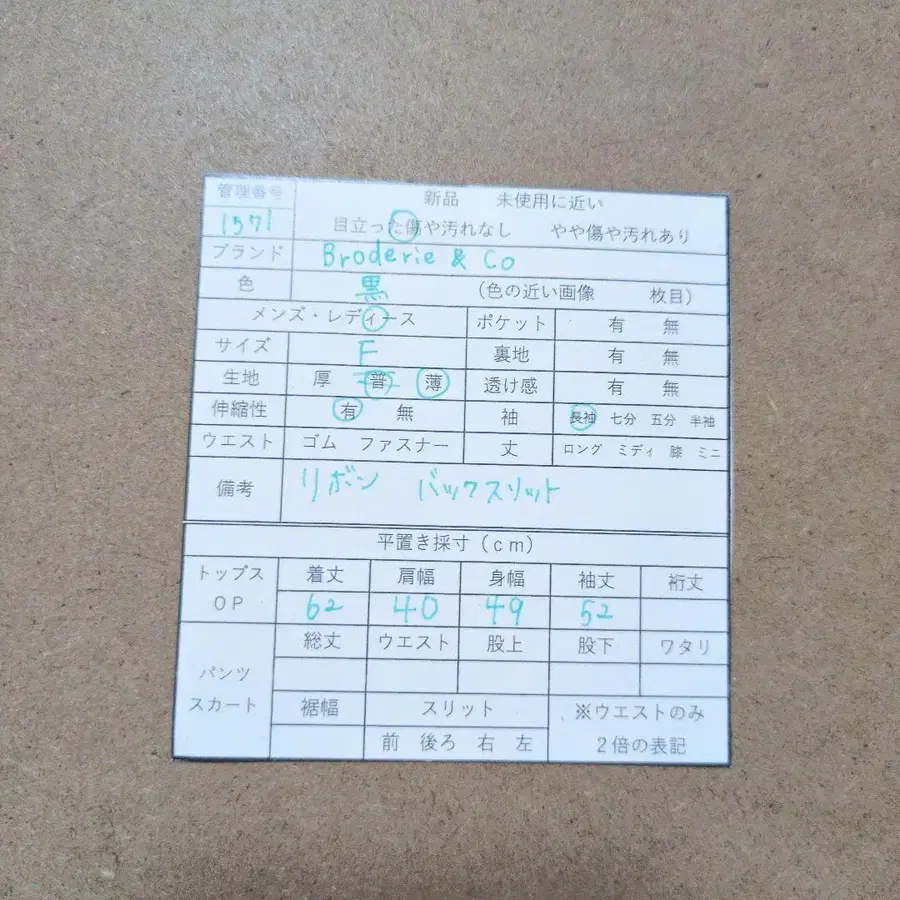 管理番号 新品 未使用に近い
1571 目立った傷や汚れなし やや傷や汚れあり
ブランド Broderie & Co
色 黒 (色の近い画像 枚目)
メンズ・レディース ポケット 有 無
サイズ F 裏地 有 無
生地 厚 普 薄 透け感 有 無
伸縮性 有 無 袖 長袖 七分 五分 半袖
ウエスト ゴム ファスナー 丈 ロング ミディ 膝 ミニ
備考 リボン バックスリット
平置き採寸(cm)
トップス 着丈 肩幅 身幅 袖丈 裄丈
OP 62 40 49 52
総丈 ウエスト 股上 股下 ワタリ
パンツ
スカート 裾幅 スリット ※ウエストのみ
前 後ろ 右 左 2倍の表記